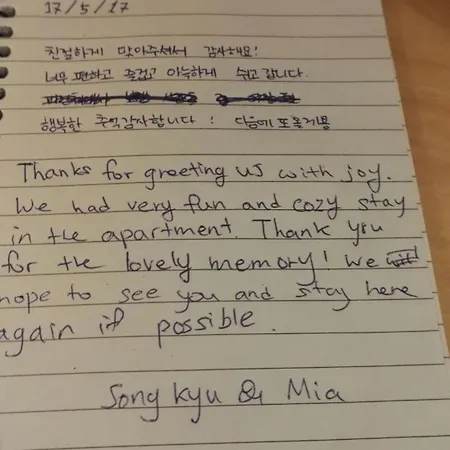 17/5/17
친절하게 맞아주셔서 감사해요!
너무 편하고 즐겁고 아늑하게 쉬고 갑니다.
행복한 추억 감사합니다! 다음에 또 올게용
Thanks for greeting us with joy.
We had very fun and cozy stay
in the apartment. Thank you
for the lovely memory! We
hope to see you and stay here
again if possible.
Song kyu & Mia